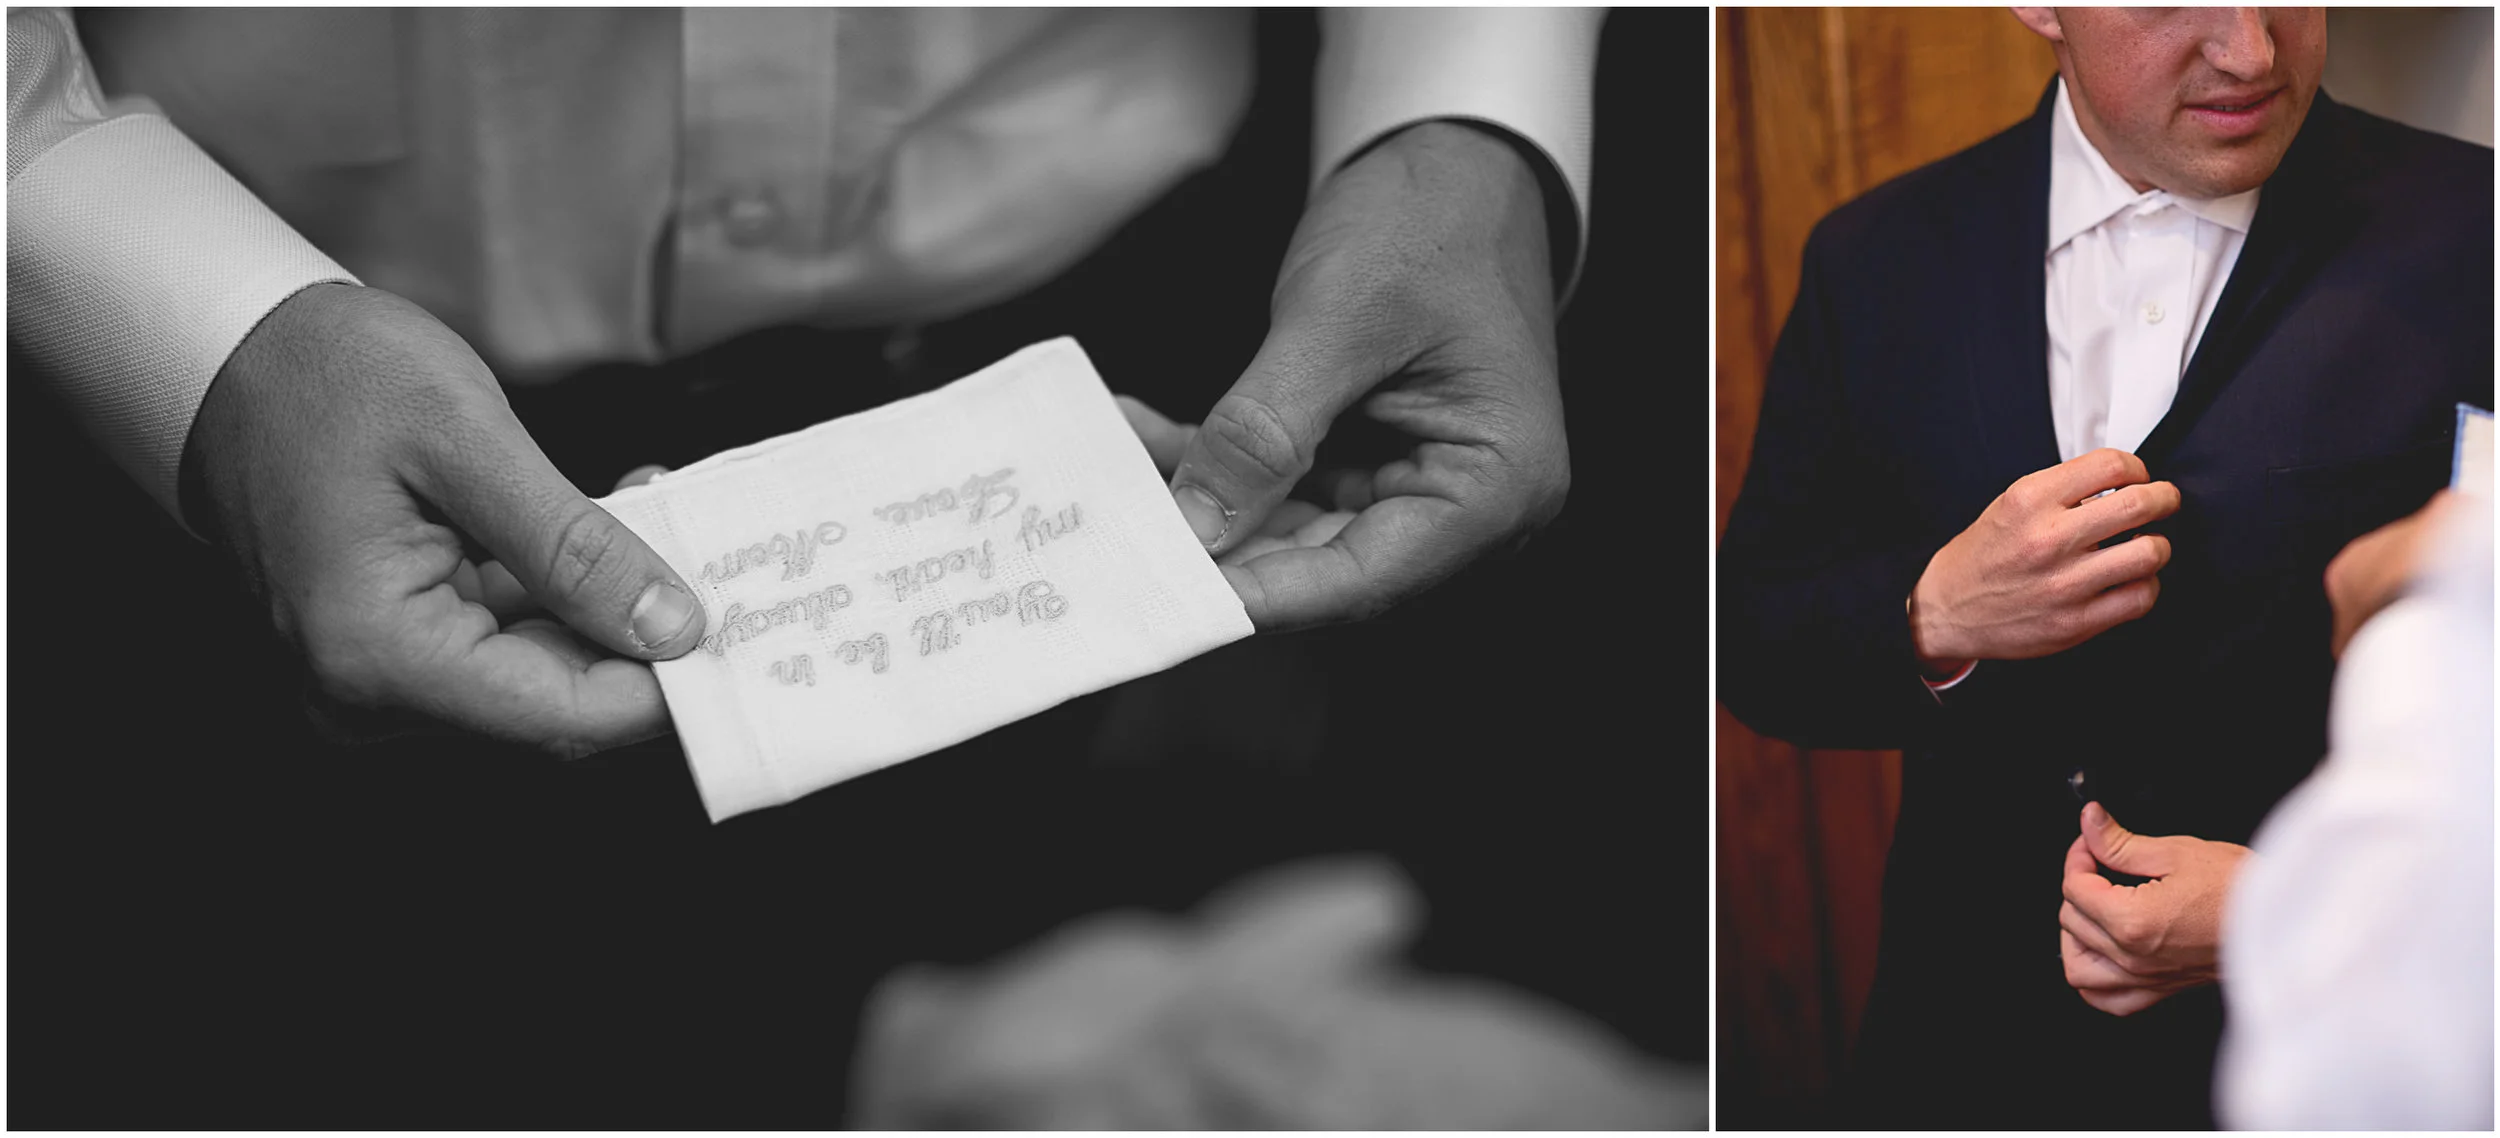 You'll be in
my heart, always
Love, Mom